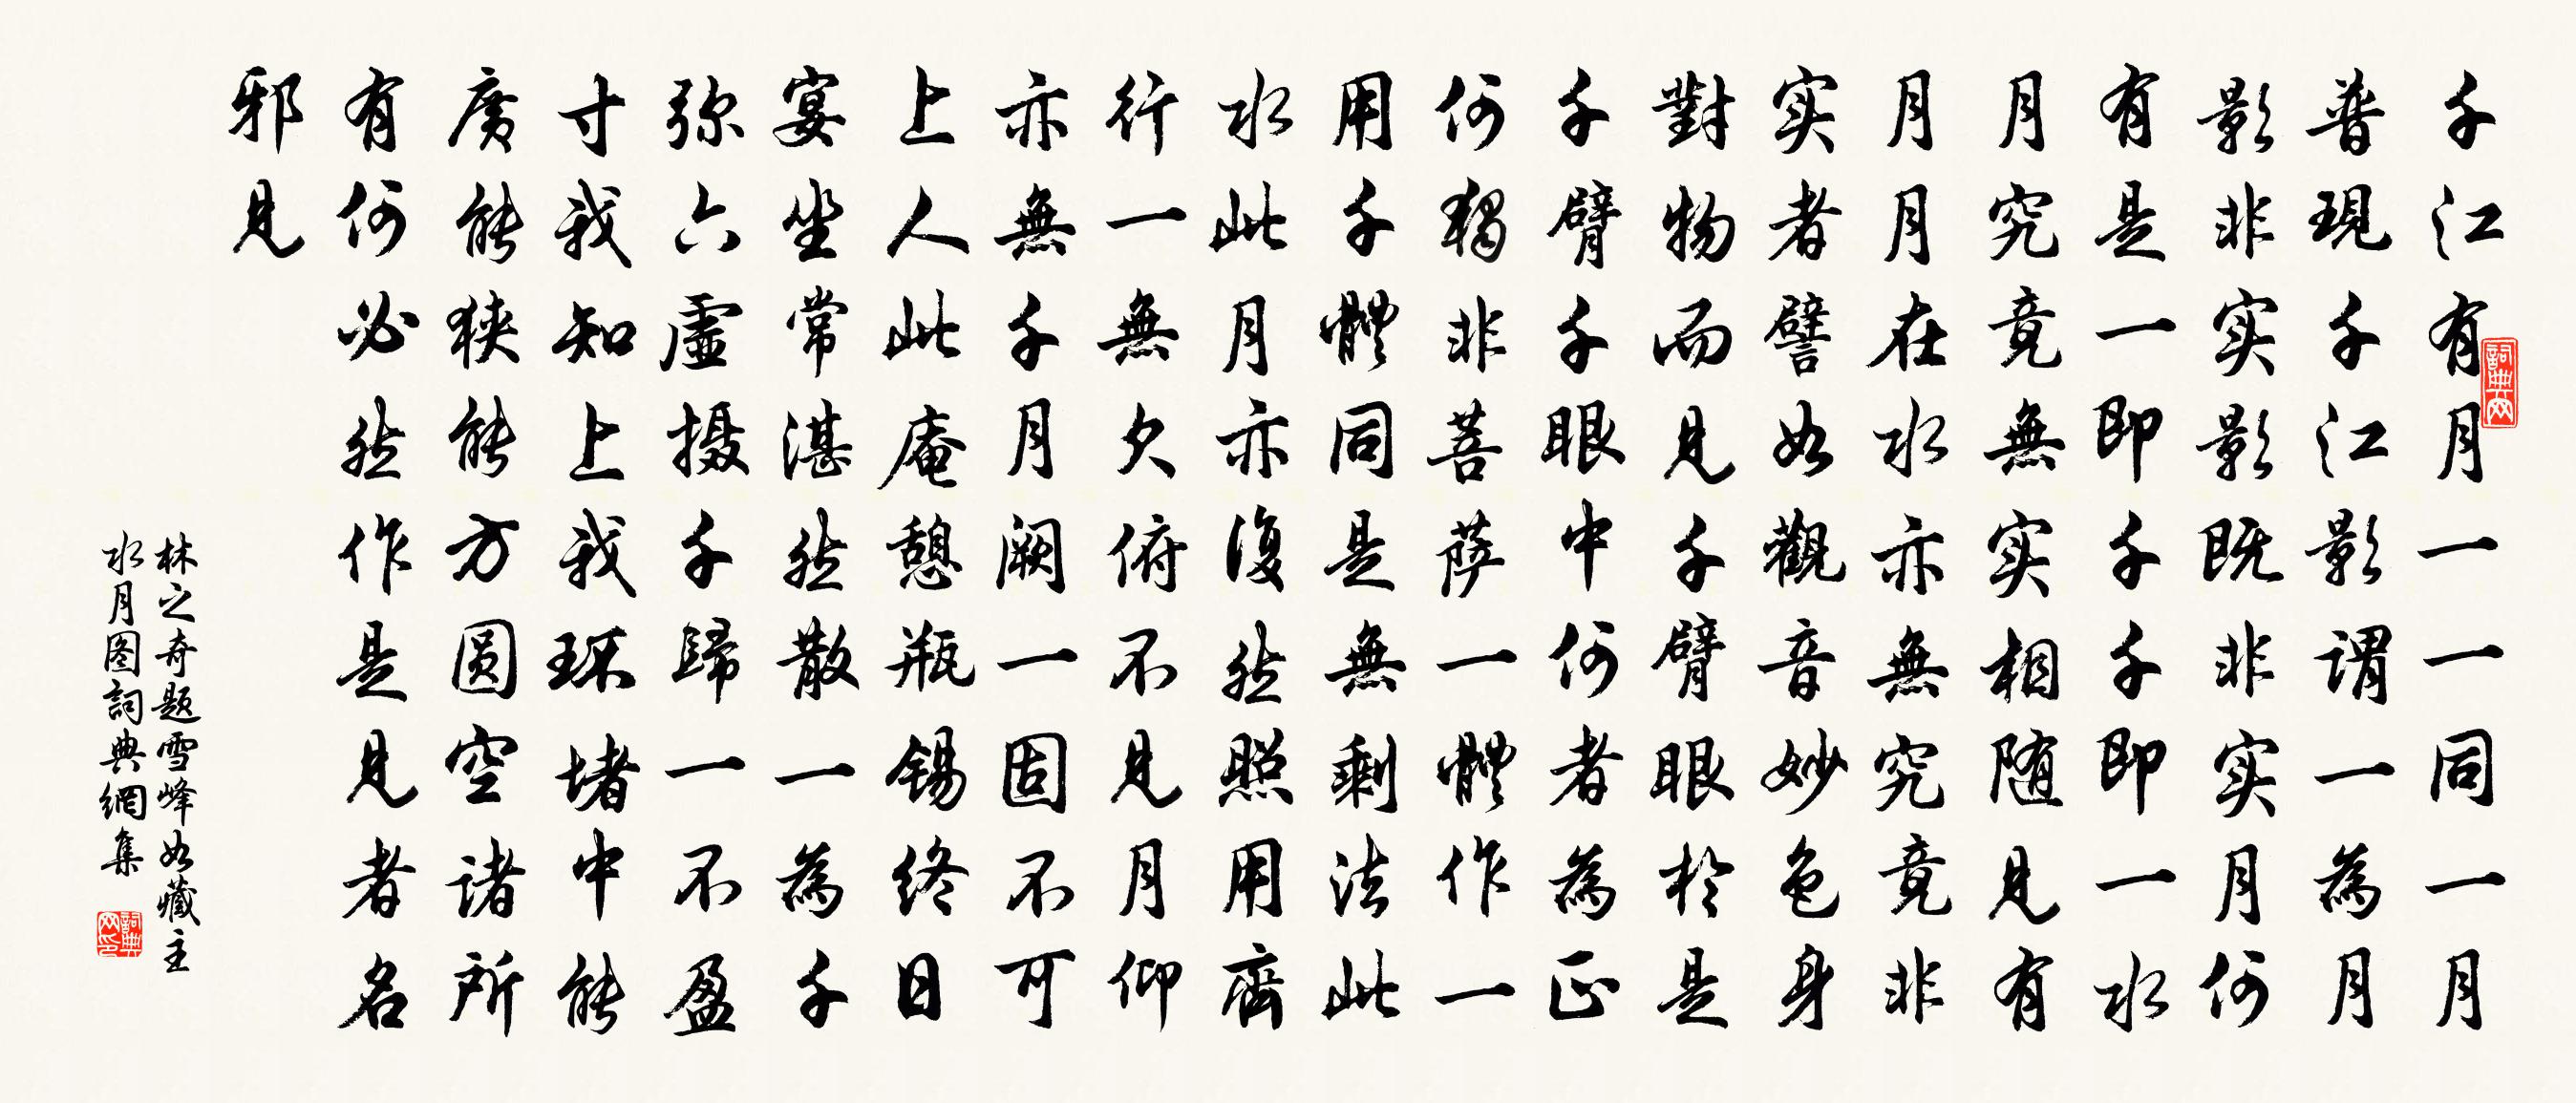 千江有月一一同一月
普現千江影謂一為月
影非实影既非实月何
有是一即千千即一水
月究竟無实相随見有
月月在水亦無究竟非
实者譬如觀音妙色身
對物而見千臂眼於是
千臂千眼中何者為正
何獨非菩萨一體作一
用千體同是無剩法此
水此月亦復然照用齊
行一無欠俯不見月仰
亦無千月阙一固不可
上人此庵憩瓶锡终日
宴坐常湛然散一為千
弥六虚摄千歸一不盈
寸我知上我环堵中能
廣能狭能方圆空诸所
有何必然作是見者名
邪見
林之奇题雪峰如藏主
水月图詞典網集
詞典网
詞典网印